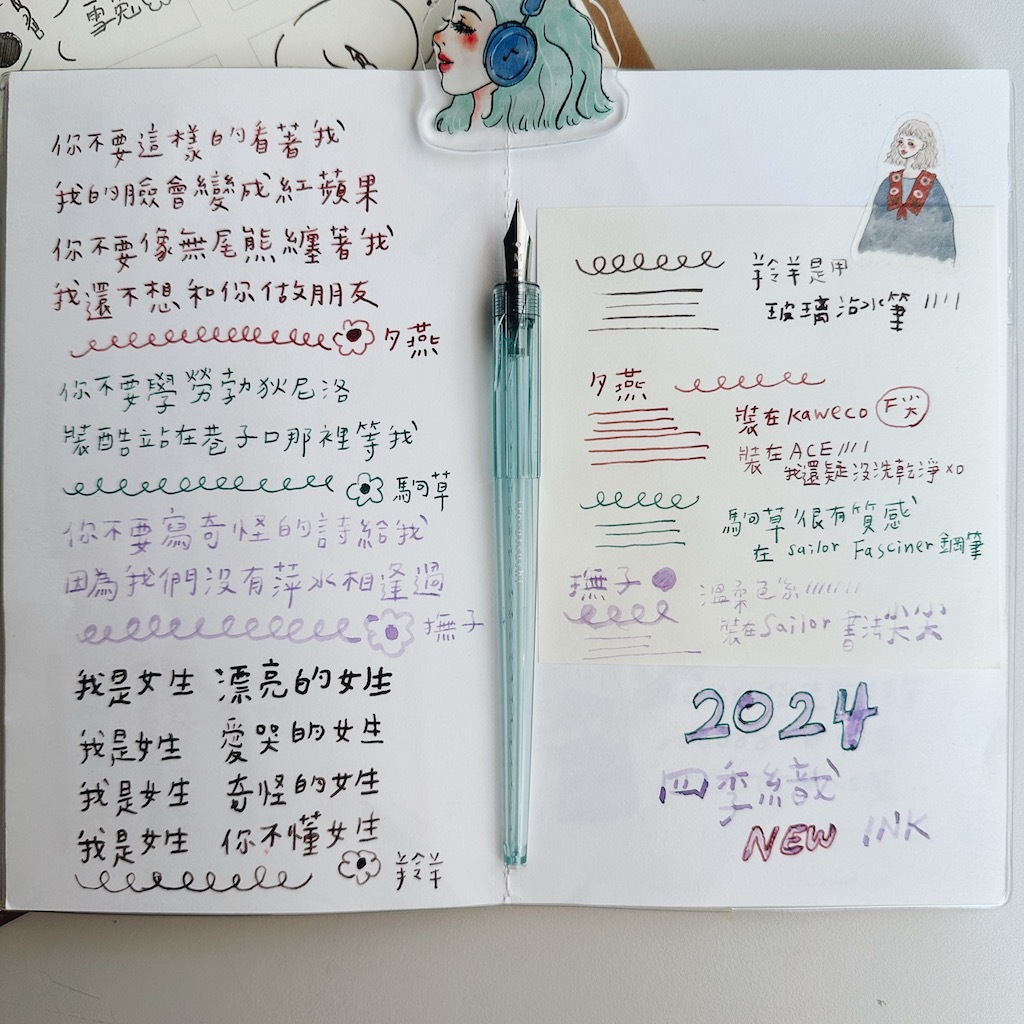 雪兔
你不要這樣的看著我
我的臉會變成紅蘋果
你不要像無尾熊纏著我
我還不想和你做朋友
夕燕
你不要學勞勃狄尼洛
裝酷站在巷子口那裡等我
駒草
你不要寫奇怪的詩給我
因為我們沒有萍水相逢過
撫子
我是女生 漂亮的女生
我是女生 愛哭的女生
我是女生 奇怪的女生
我是女生 你不懂女生
羚羊
羚羊是用
玻璃沾水筆
夕燕
裝在 Kaweco F尖
裝在 ACE
我還疑沒洗乾淨 XD
駒草很有質感
在 sailor Fasciner 鋼筆
撫子
溫柔色系
裝在 Sailor 書法尖尖
2024
四季織
NEW INK